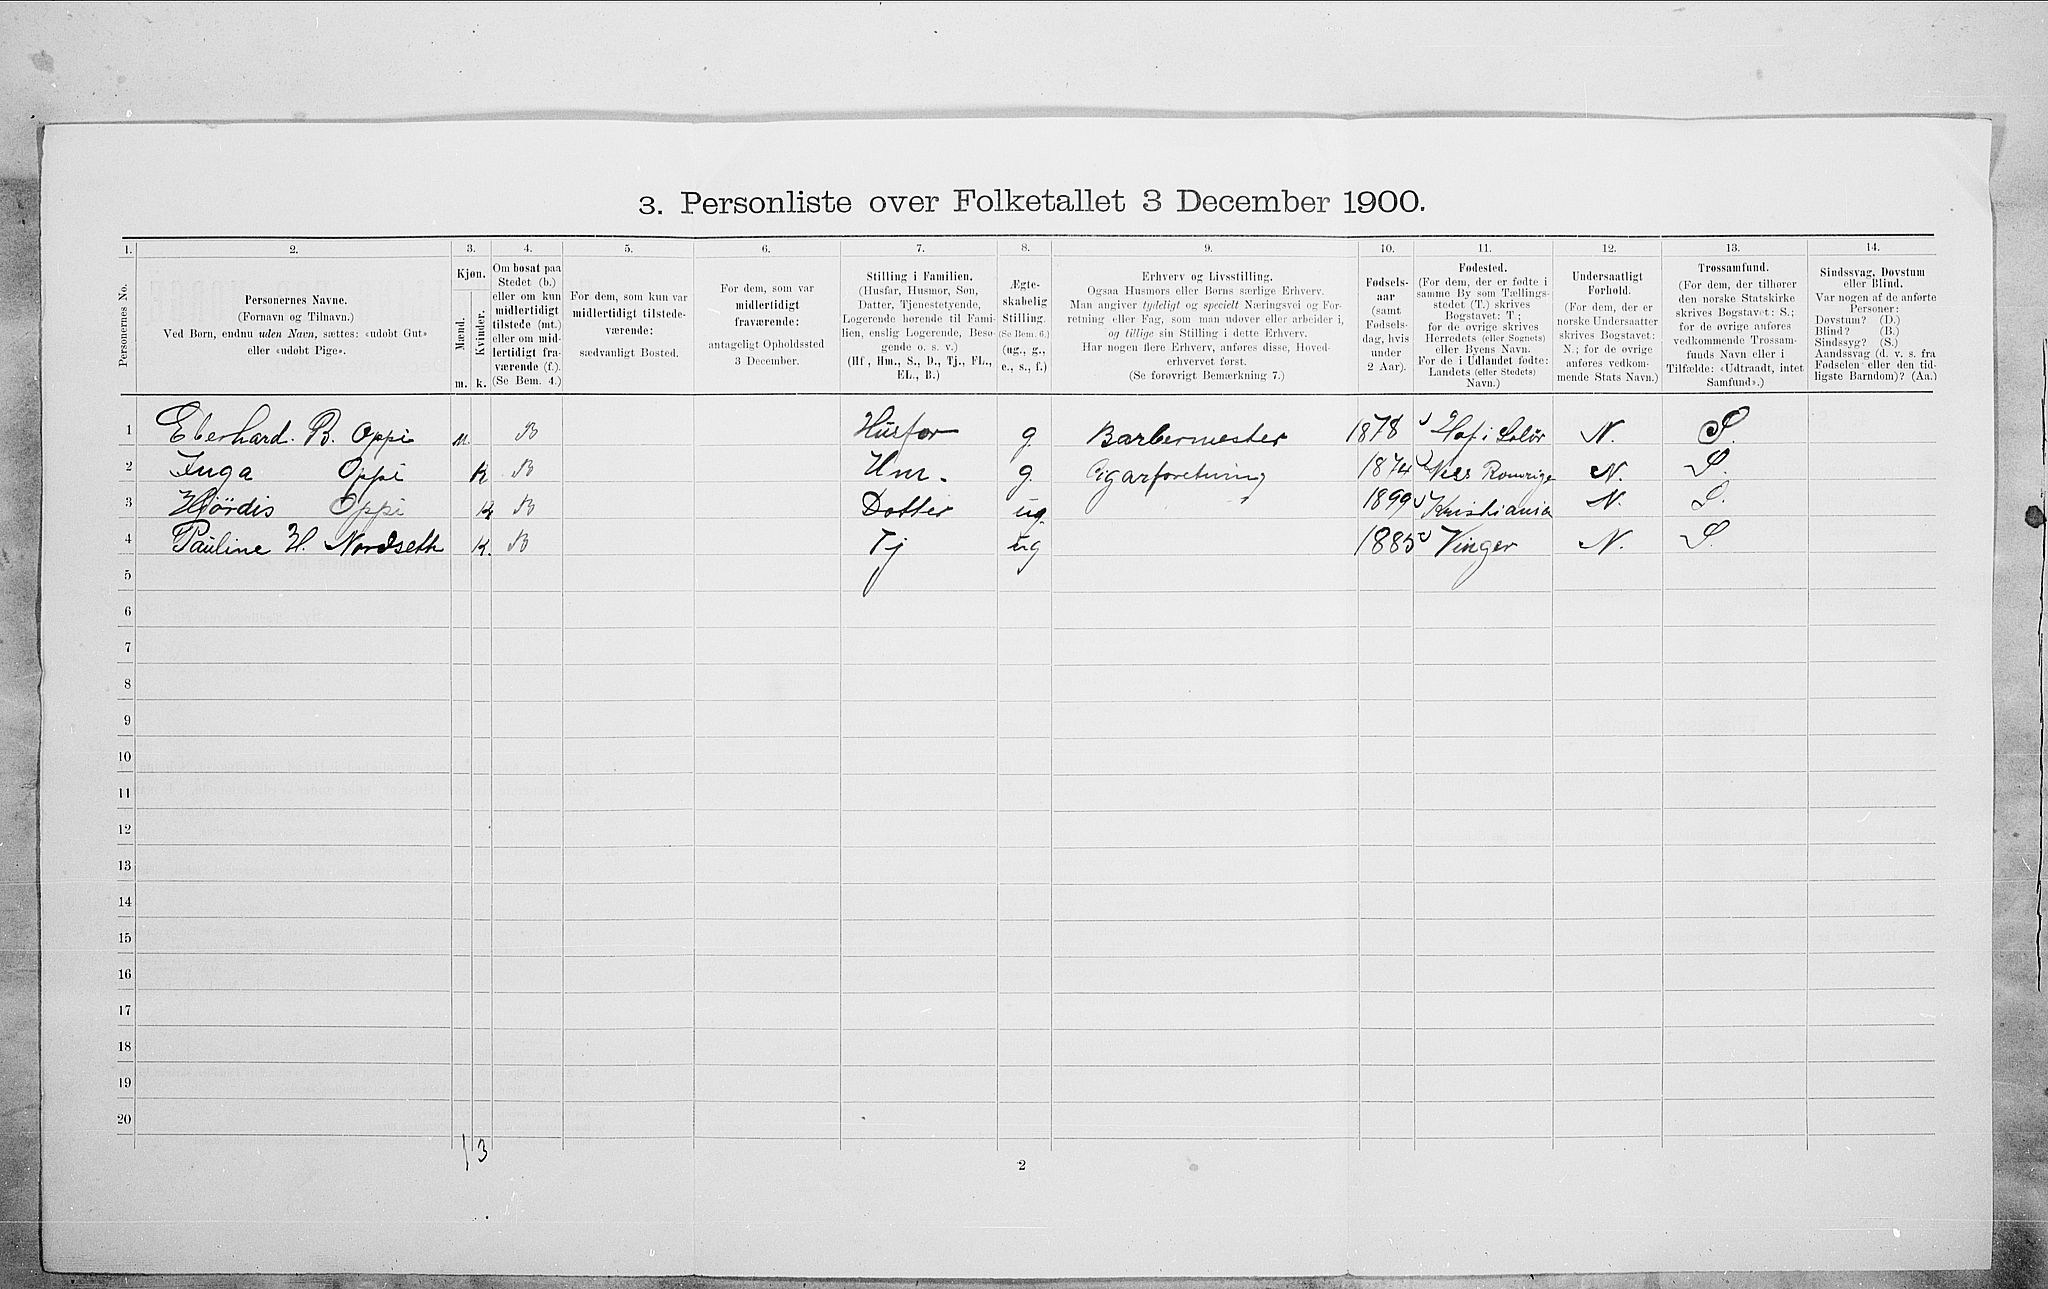 3. Personliste over Folketallet 3 December 1900.
1. 2. 3. 4. 5. 6. 7. 8. 9. 10. 11. 12. 13. 14.
Personernes No.
Personernes Navne.
(Fornavn og Tilnavn.)
Ved Børn, endnu uden Navn, sættes: «udobt Gut»
eller «udobt Pige».
Kjøn.
Mænd.
Kvinder.
m. k.
Om bosat paa
Stedet (b.)
eller om kun
midlertidigt
tilstede (mt.)
eller om mid-
lertidigt fra-
værende (f.).
(Se Bem. 4.)
For dem, som kun var
midlertidigt tilstede-
værende:
sædvanligt Bosted.
For dem, som var
midlertidigt
fraværende:
antageligt Opholdssted
3 December.
Stilling i Familien.
(Husfar, Husmor, Søn,
Datter, Tjenestetyende,
Logerende hørende til Fami-
lien, enslig Logerende, Besø-
gende o. s. v.)
(Hf, Hm., S., D., Tj., FL.,
EL., B.)
Ægte-
skabelig
Stilling.
(Se Bem. 6.)
(ug., g.,
e., s., f.)
Erhverv og Livsstilling.
Ogsaa Husmors eller Børns særlige Erhverv.
Man angiver tydeligt og specielt Næringsvei og For-
retning eller Fag, som man udøver eller arbeider i,
og tillige sin Stilling i dette Erhverv.
Har nogen flere Erhverv, anføres disse, Hoved-
erhvervet først.
(Se forøvrigt Bemærkning 7.)
Fødsels-
aar
(samt
Fødsels-
dag, hvis
under
2 Aar).
Fødested.
(For dem, der er fødte i
samme By som Tællings-
stedet (T.) skrives
Bogstavet: T;
for de øvrige skrives
Herredets (eller Sognets)
eller Byens Navn.
For de i Udlandet fødte:
Landets (eller Stedets)
Navn.)
Undersaatligt
Forhold.
(For dem, der er
norske Undersaatter
skrives Bogstavet:
N.; for de øvrige
anføres vedkom-
mende Stats Navn.)
Trossamfund.
(For dem, der tilhører
den norske Statskirke
skrives Bogstavet: S.;
for de øvrige anføres
vedkommende Trossam-
funds Navn eller i
Tilfælde: «Udtraadt, intet
Samfund».)
Sindssvag, Døvstum
eller Blind.
Var nogen af de anførte
Personer:
Døvstum? (D.)
Blind? (B.)
Sindssyg? (S.)
Aandssvag (d. v. s. fra
Fødselen eller den tid-
ligste Barndom)? (Aa.)
1 Eberhard. B. Oppi m. B Husfar g Barbermester 1878 Hof i Solør N. S.
2 Inga Oppi K B Hm. g. Cigarforetning 1874 Nes Romrige N. S.
3 Hjördis Oppi K B Dotter ug. 1899 Kristiania N. S.
4 Pauline H. Nordseth K. B Tj ug 1885 Vinger N. S.
5
6
7
8
9
10
11
12
13
14
15
16
17
18
19
20
1 3
2